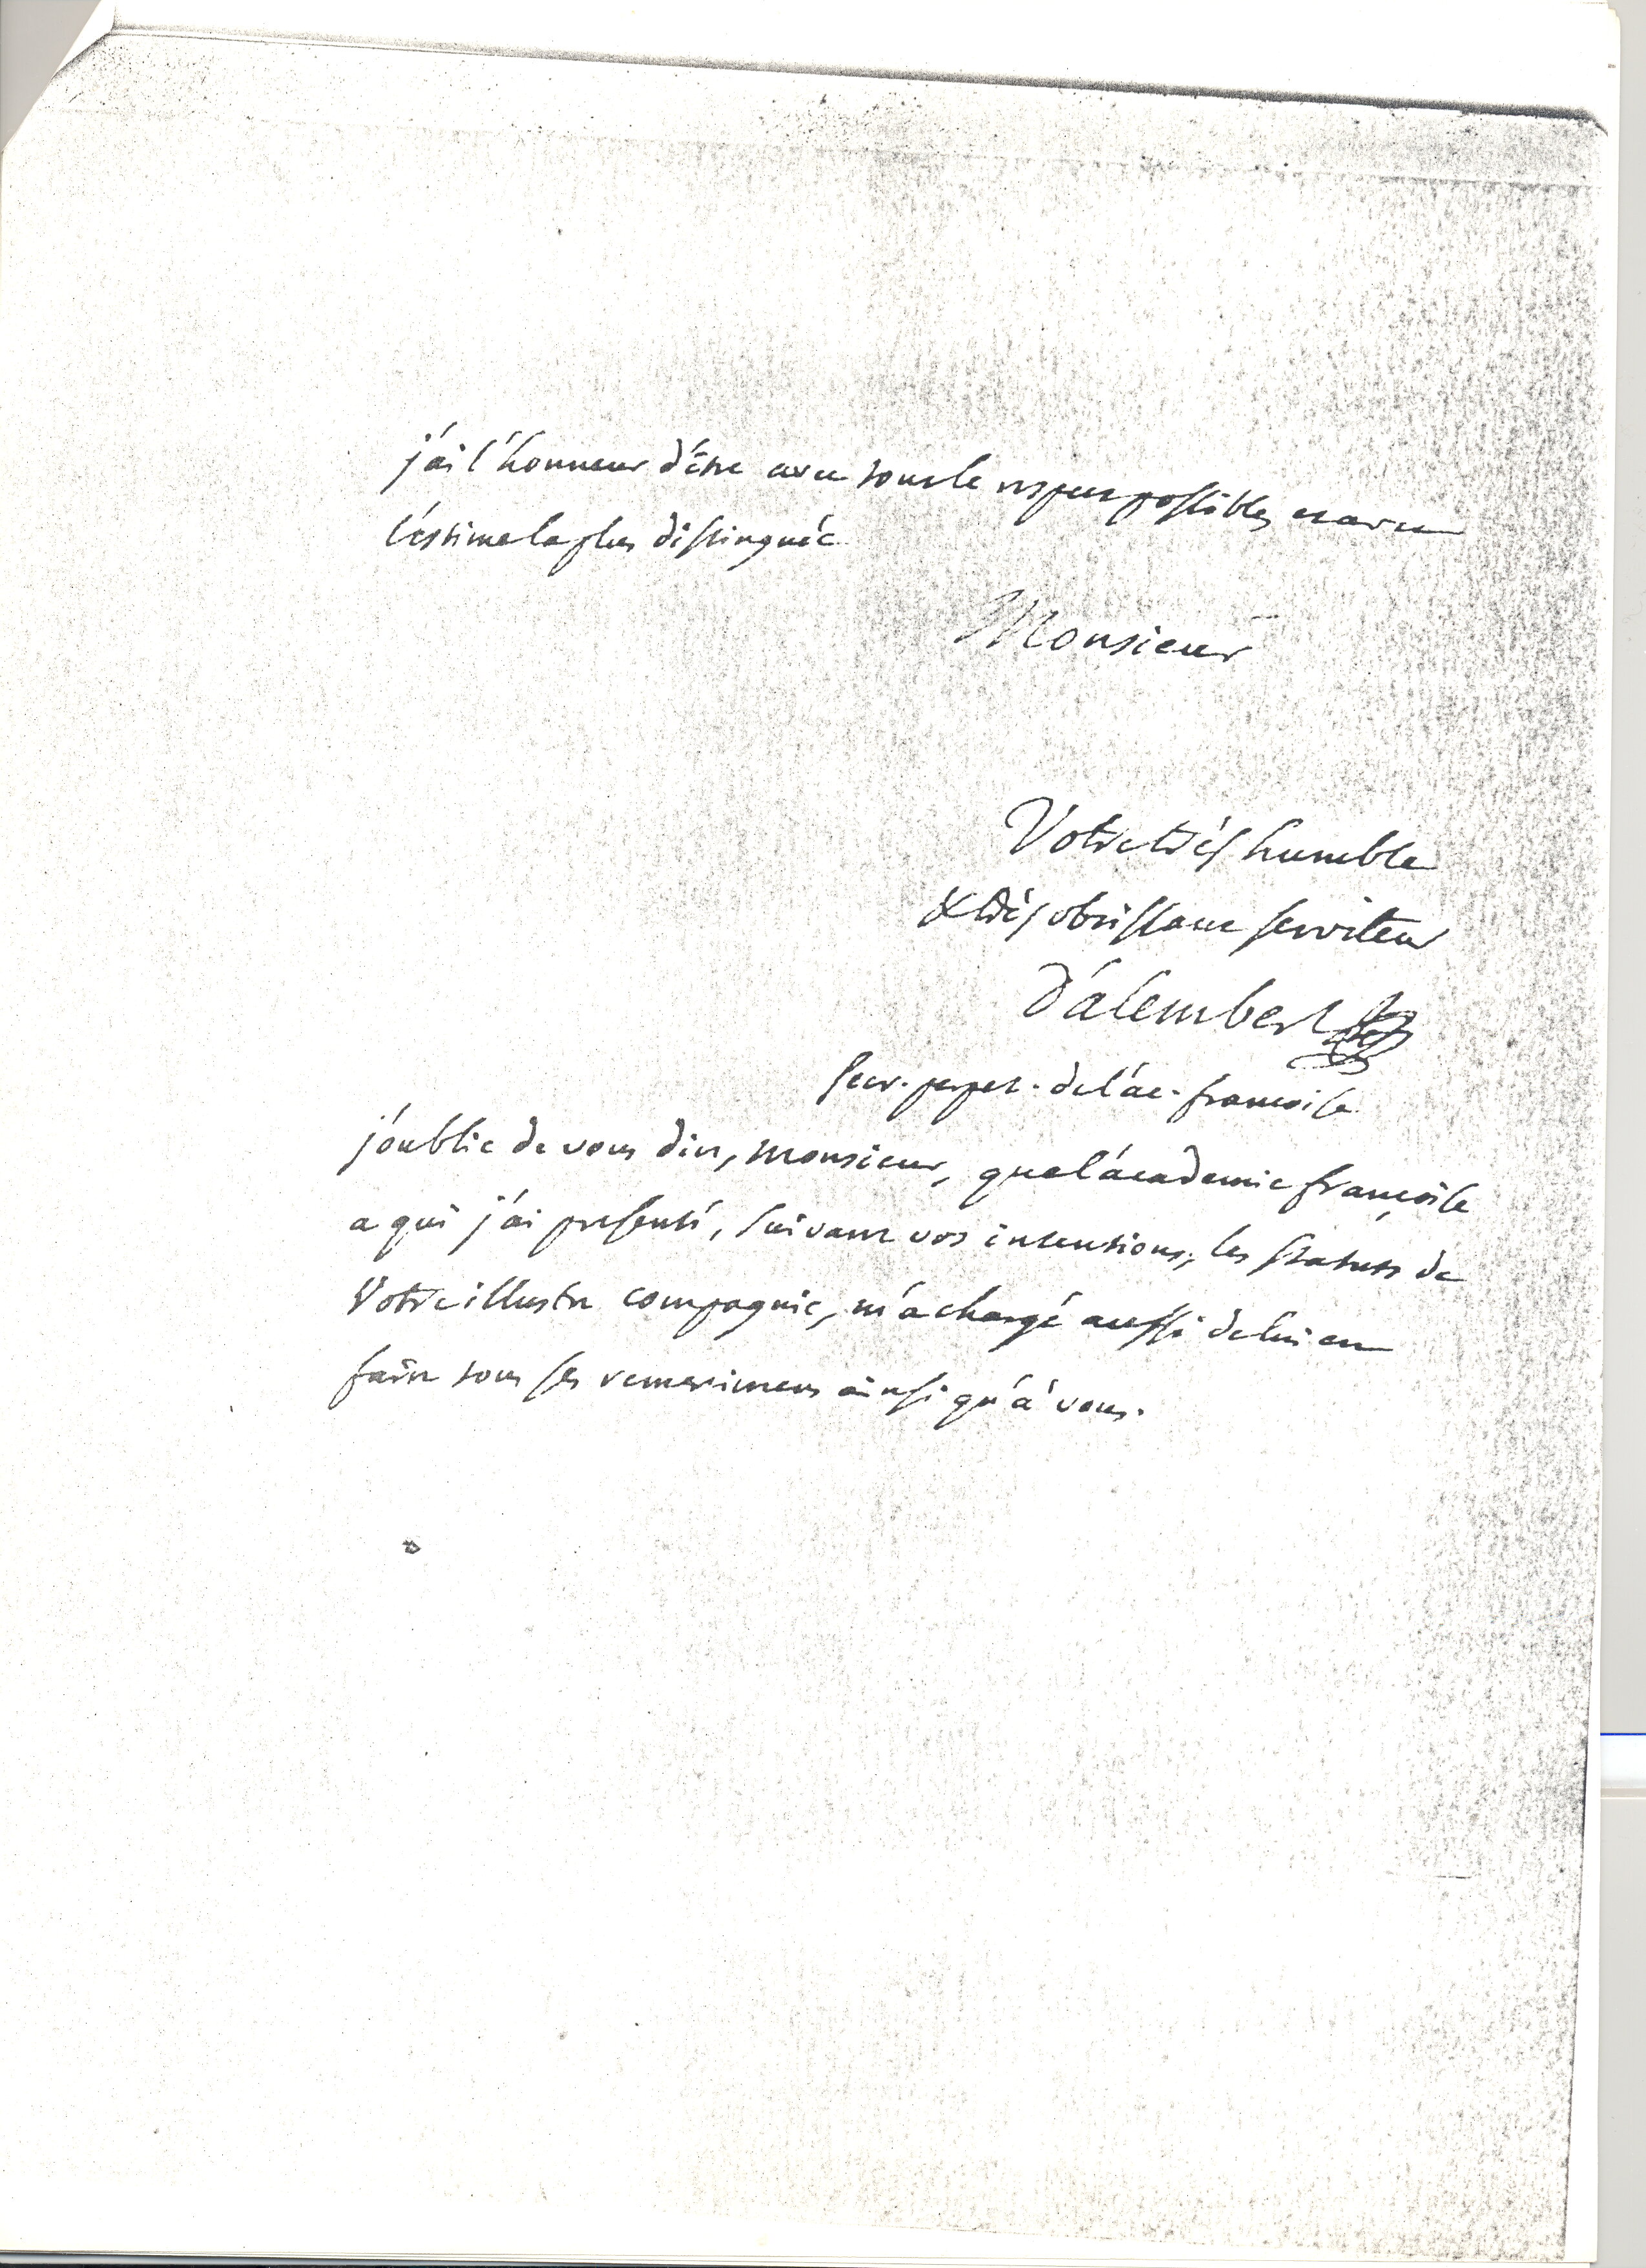 j'ai l'honneur d'être avec tout le respect possible, et avec
l'estime la plus distinguée
Monsieur
Votre très humble
& très obéissant serviteur
D'alembert
secr. perpet. de l'ac. françoise
j'oublie de vous dire, monsieur, que l'académie françoise
a qui j'ai presenté, suivant vos intentions, les statuts de
Votre illustre compagnie, m'a chargé aussi de lui en
faire tous ses remercimens ainsi qu'à vous.